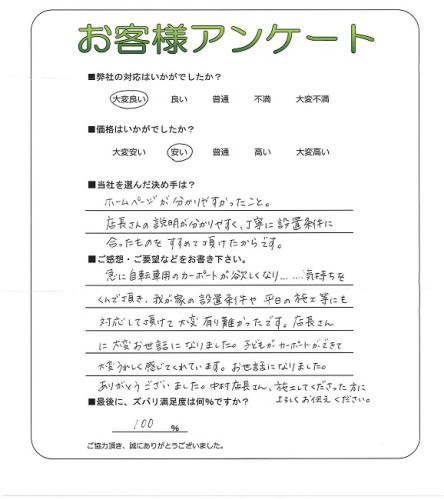 お客様アンケート
■弊社の対応はいかがでしたか？
大変良い 良い 普通 不満 大変不満
■価格はいかがでしたか？
大変安い 安い 普通 高い 大変高い
■当社を選んだ決め手は？
ホームページが分かりやすかったこと。
店長さんの説明が分かりやすく、丁寧に設置条件に
合ったものをすすめて頂けたからです。
■ご感想・ご要望などをお書き下さい。
急に自転車用のカーポートが欲しくなり……気持ちを
くんで頂き、我が家の設置条件や平日の施工等にも
対応して頂けて大変有り難かったです。店長さん
に大変お世話になりました。子どもがカーポートができて
大変うれしく感じてくれています。お世話になりました。
ありがとうございました。中村店長さん、施工してくださった方に
よろしくお伝えください。
■最後に、ズバリ満足度は何%ですか？
100 %
ご協力頂き、誠にありがとうございました。